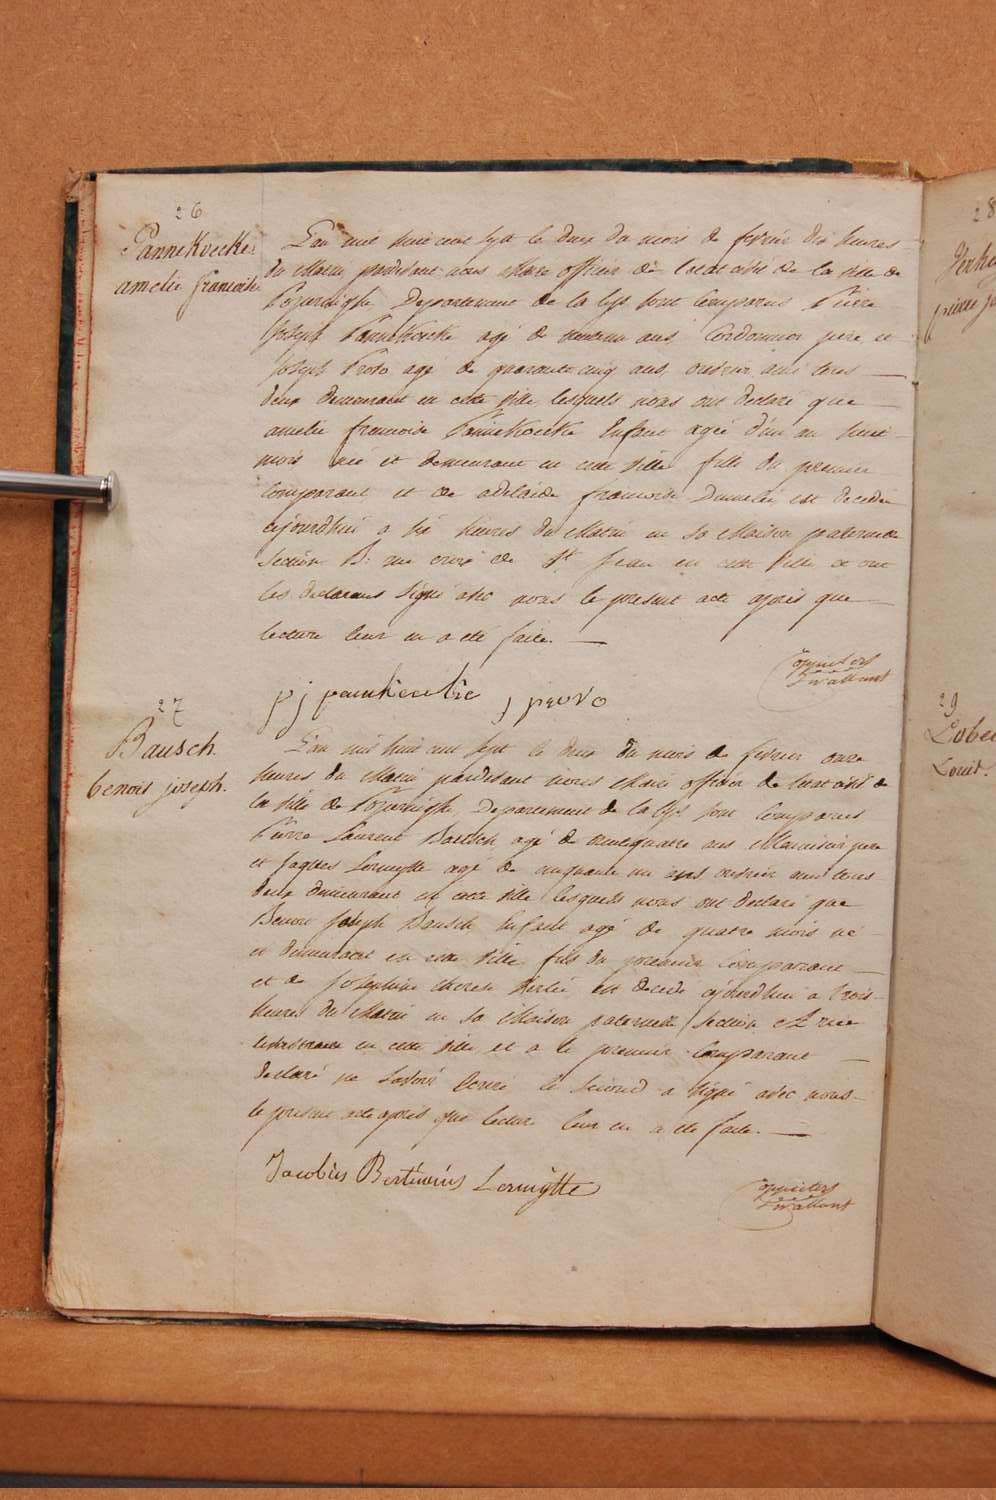 26
PanneKoecke
amelie francoise
L'an mil huit cent sept le deux du mois de fevrier dix heures
du Matin pardevant nous Maire officier de l'etat civil de la ville de
Poperinghe, Departement de la Lys sont Comparus Pierre
Joseph PanneKoecke agé de ans, Cordonnier pere et
Joseph Provo agé de quarante cinq ans, ouvrier ami tous
deux demeurant en cette ville, lesquels nous ont declaré que
amelie francoise PanneKoecke Enfant agée d'un an huit
mois née et demeurant en cette ville fille du premier
Comparant et de adelaide francoise est decedée
ajourdhui a six heures du Matin en sa Maison paternelle
Section B: rue croix de St Jean en cette ville et ont
les declarans signé avec nous le present acte apres que
lecture leur en a été faite.
p j pannkoucke j provo
27
Bausch
benoit joseph.
L'an mil huit cent sept le deux du mois de fevrier onze
heures du Matin pardevant nous Maire officier de l'etat civil de
la ville de Poperinghe, Departement de la Lys sont Comparus
Pierre Laurent Bausch, agé de quatre ans pere
et Jaques Lermytte agé de cinquante un ans ouvrier ami tous
deux demeurant en cette ville lesquels nous ont declaré que
Benoit Joseph Bausch Enfant agé de quatre mois né
et demeurant en cette ville fils du premier Comparant
et de Josephine therese est decedé ajourdhui a trois
heures du Matin en sa Maison paternelle Section A rue
en cette ville et a le premier Comparant
declaré ne savoir Ecrire le second a signé avec nous
le present acte apres que lecture leur en a été faite.
Jacobus Bertinus Lermÿtte
28
pierre
29
Louis